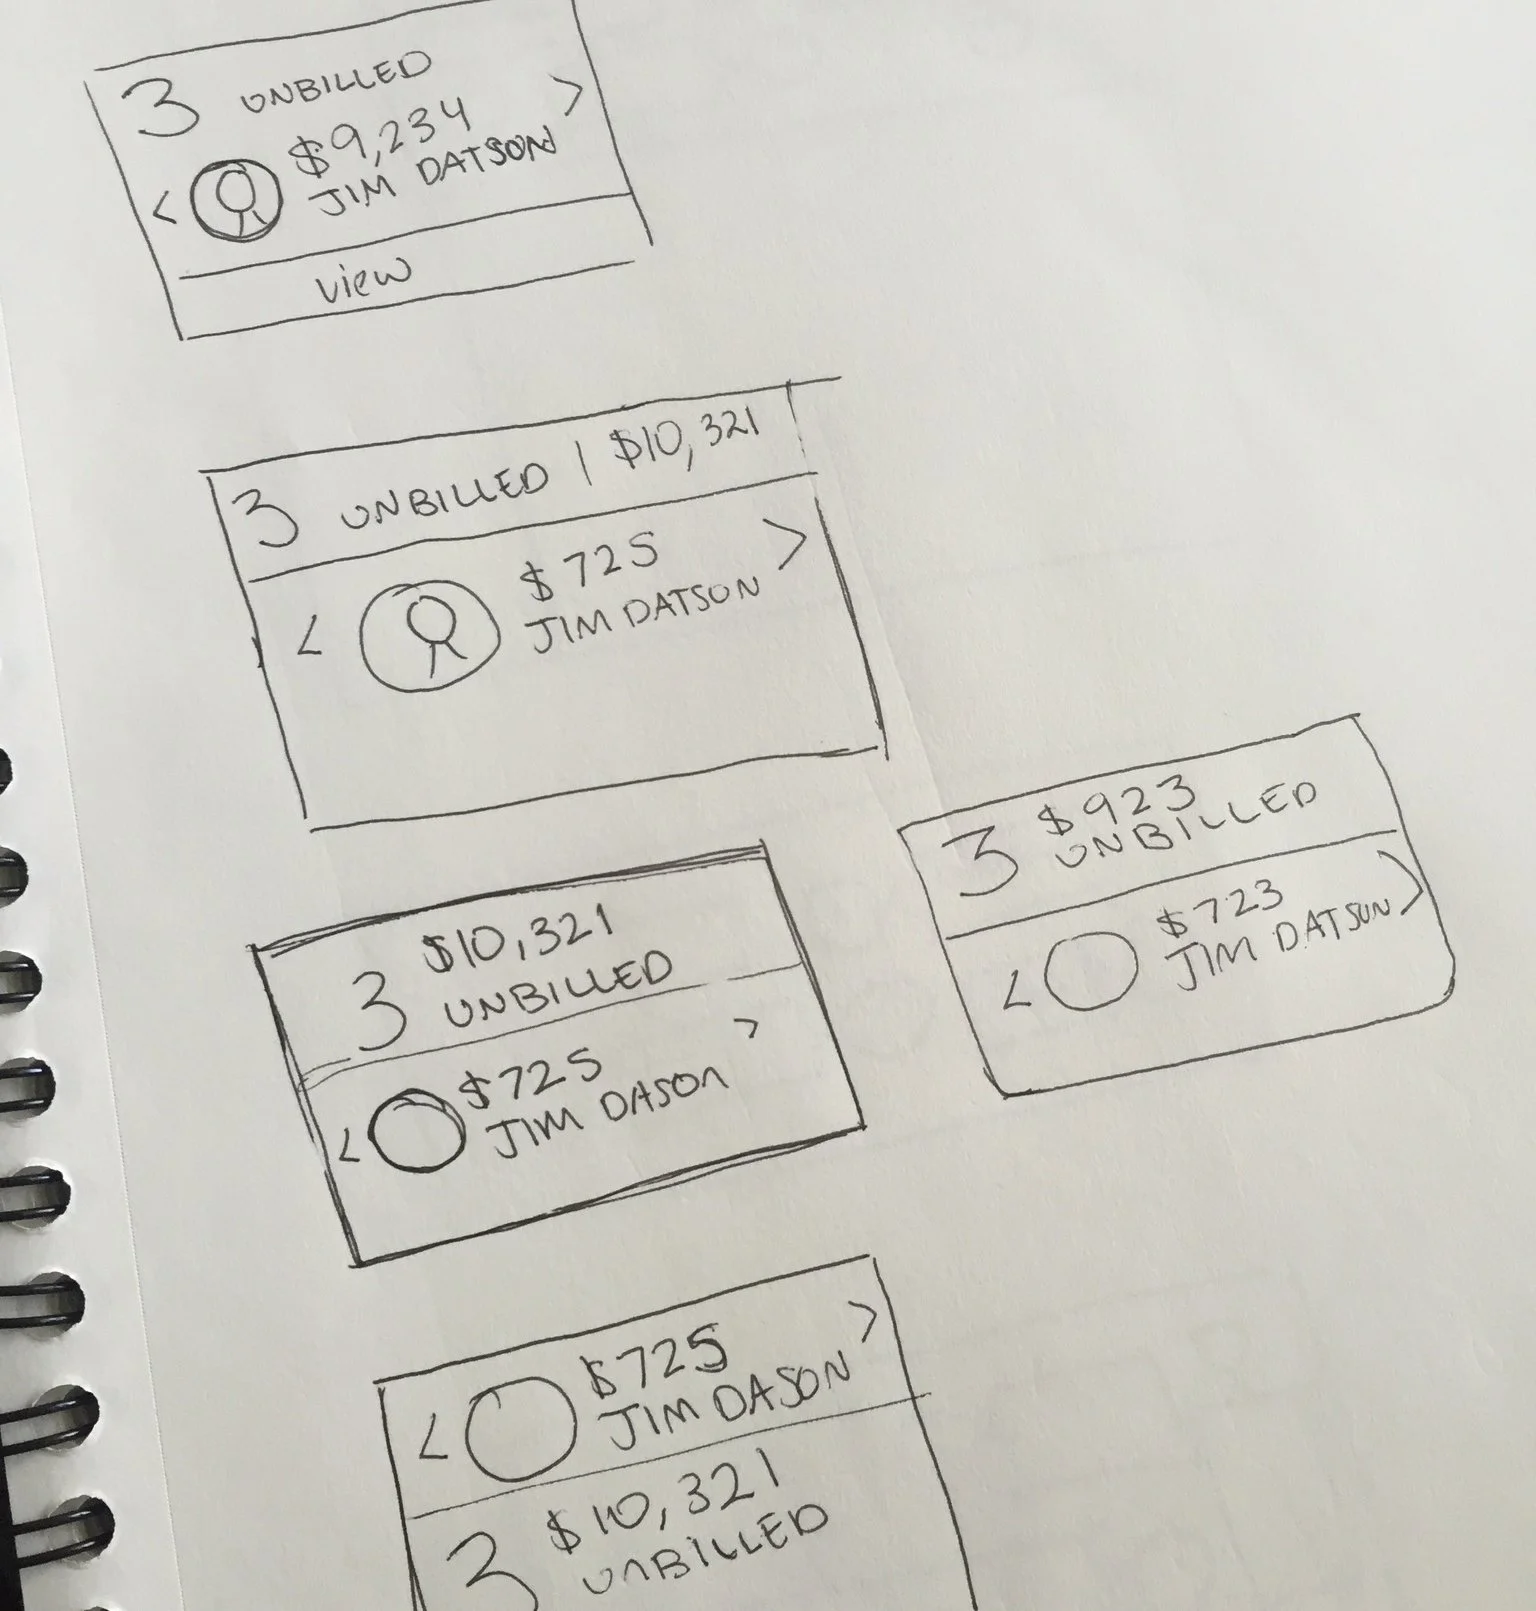 3 UNBILLED >
$9,234
< JIM DATSON
view
3 UNBILLED | $10,321
$725 >
< JIM DATSON
$10,321
3 UNBILLED
$725 >
< JIM DASON
$923
3 UNBILLED
$723 >
< JIM DATSON
$725 >
< JIM DASON
$10,321
3 UNBILLED